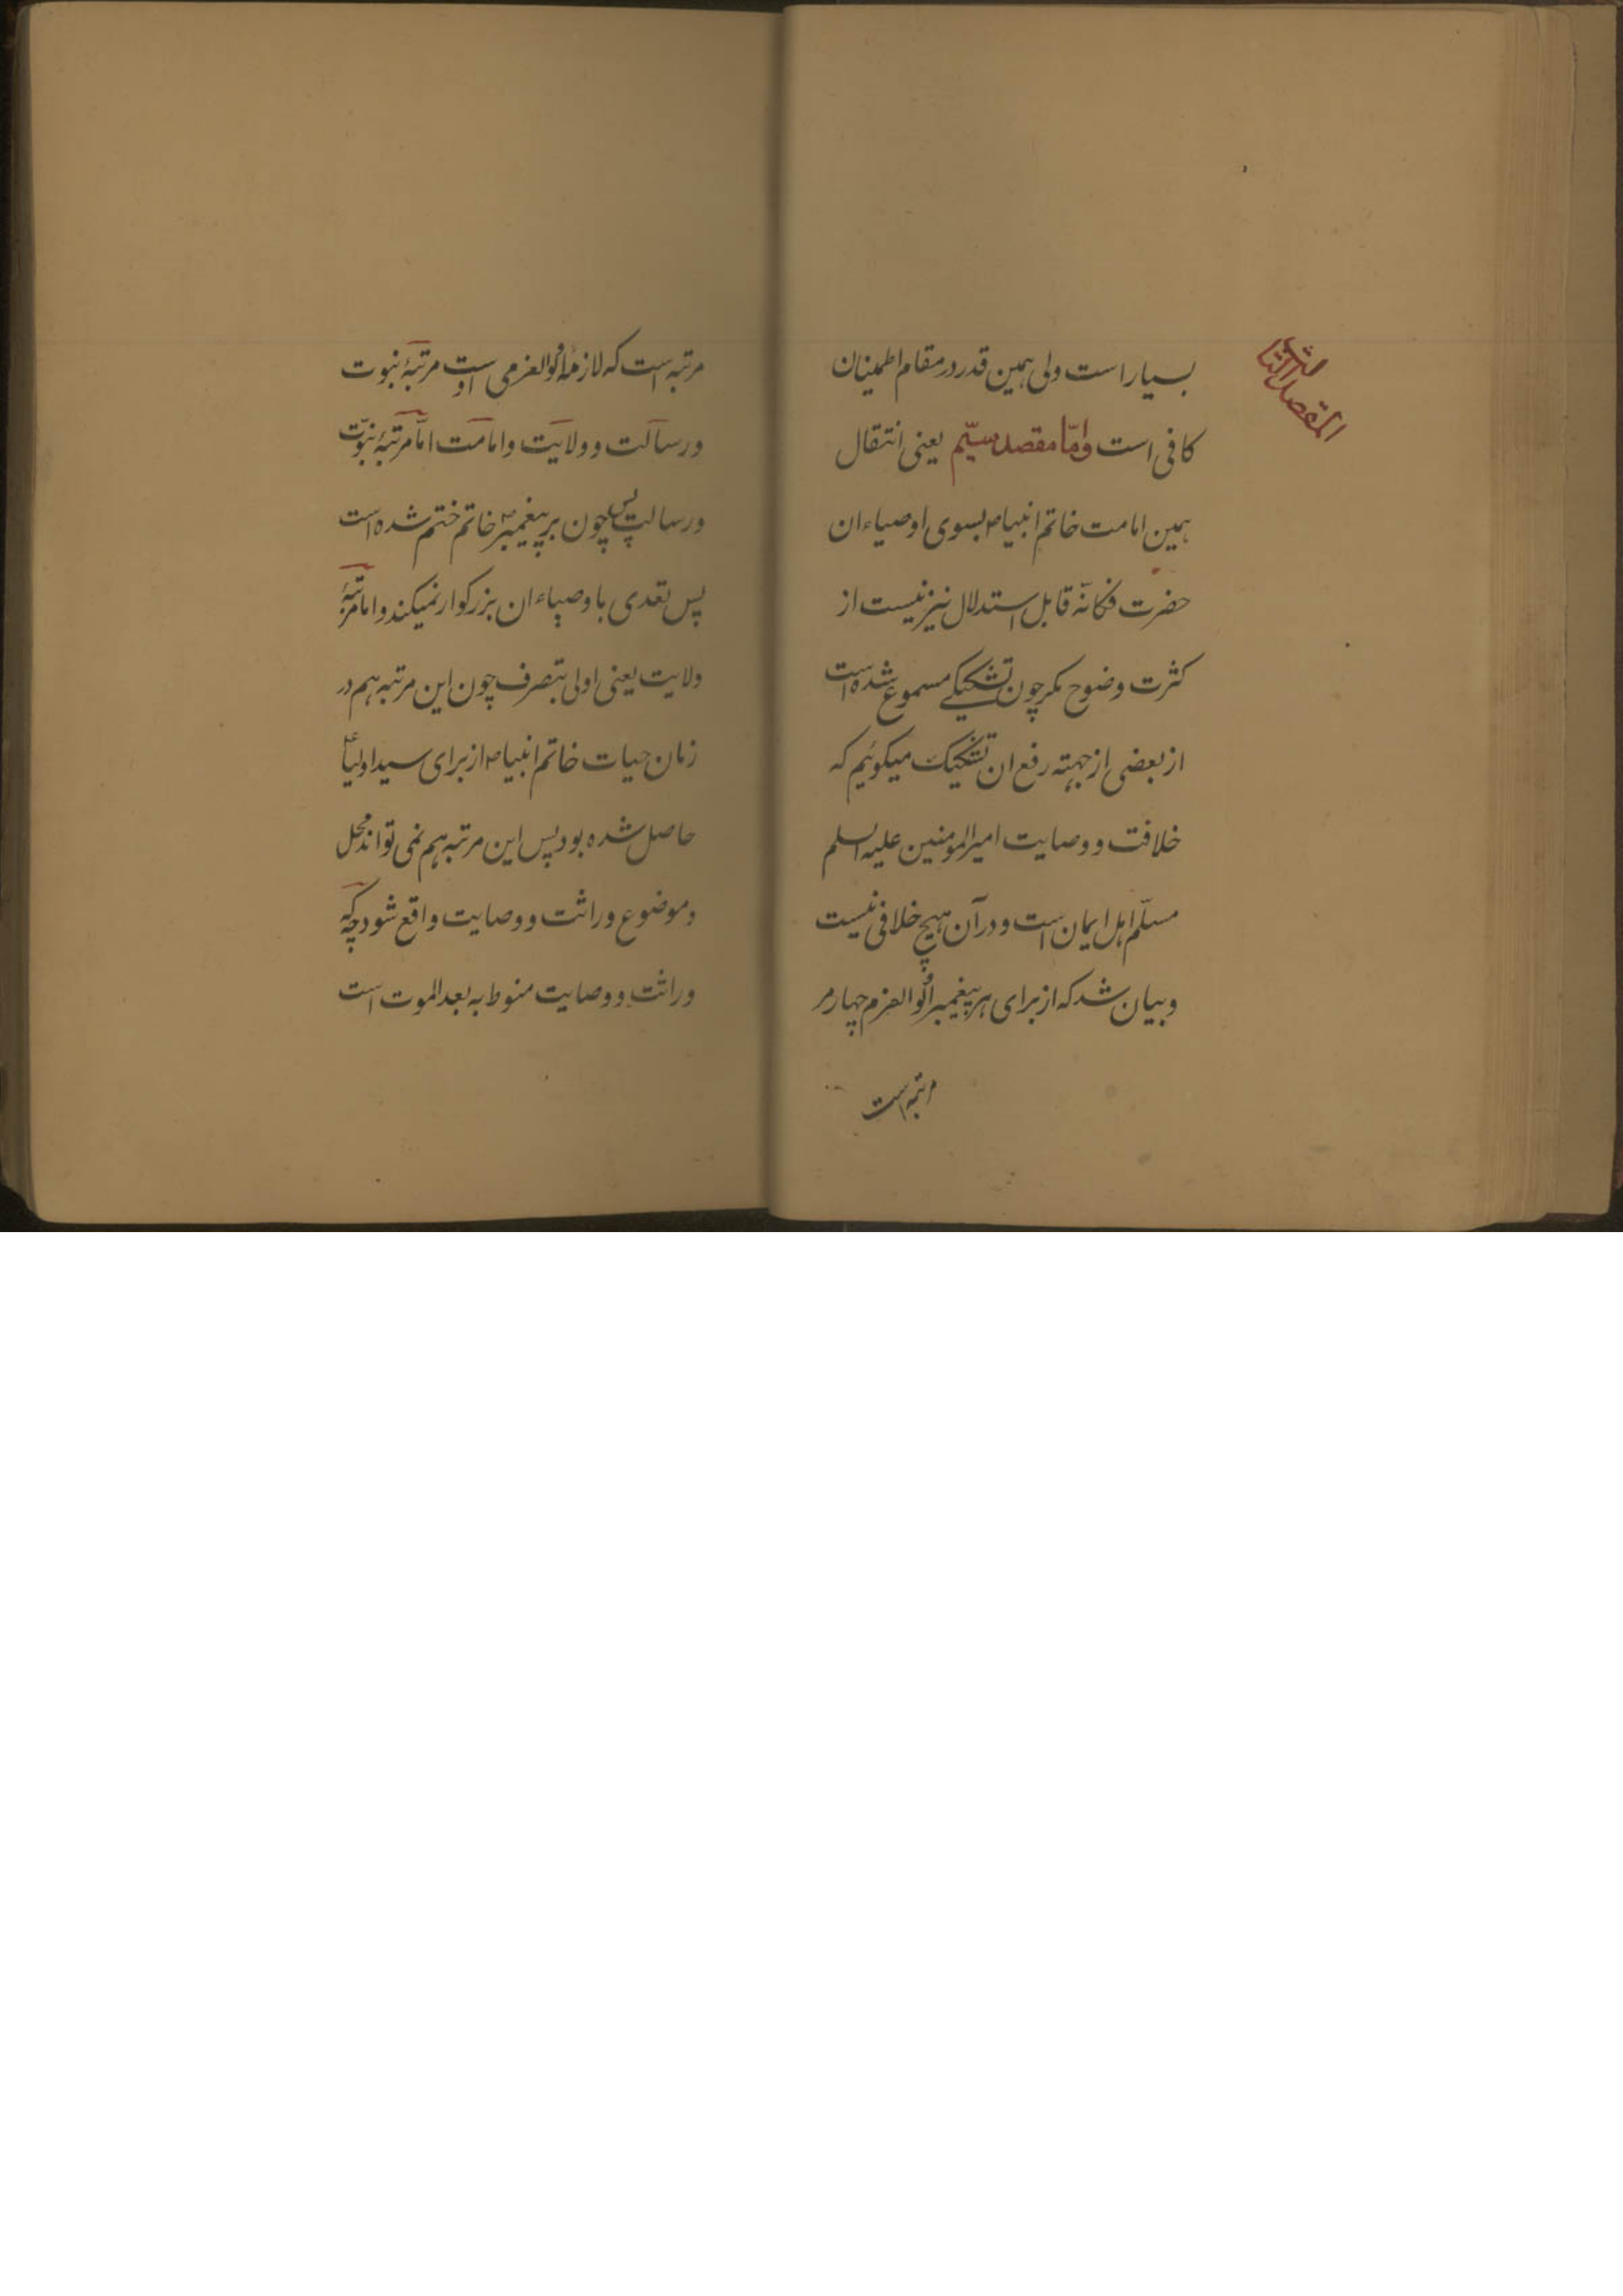 المقصد الثالث
بسیار است ولی همین قدر در مقام اطمینان
کافی است وامّا مقصد سیّم یعنی انتقال
همین امامت خاتم انبیا ص بسوی اوصیاء ان
حضرت فکانّه قابل استدلال نیز نیست از
کثرت وضوح مکر چون تشکیکے مسموع شده است
از بعضی از جهته رفع ان تشکیک میکوئیم که
خلافت و وصایت امیرالمومنین علیه السلم
مسلّم اهل ایمان است و در آن هیچ خلافی نیست
و بیان شد که از برای هر پیغمبر اُولوالعزم چهار مر
مرتبه است
مرتبه است که لازمهٔ اُولوالعزمی اوست مرتبهٔ نبوت
و رسالت و ولایت و امامت امّا مرتبهٔ نبوّت
و رسالت پس چون بر پیغمبر ص خاتم ختم شده است
پس تعدی باوصیاء ان بزرکوار نمیکند و اما مرتبهٔ
ولایت یعنی اولی بتصرف چون این مرتبه هم در
زمان حیات خاتم انبیا ص از برای سید اولیا ع
حاصل شده بود پس این مرتبه هم نمی تواند محل
و موضوع وراثت و وصایت واقع شود چه که
وراثت و وصایت منوط به بعد الموت است